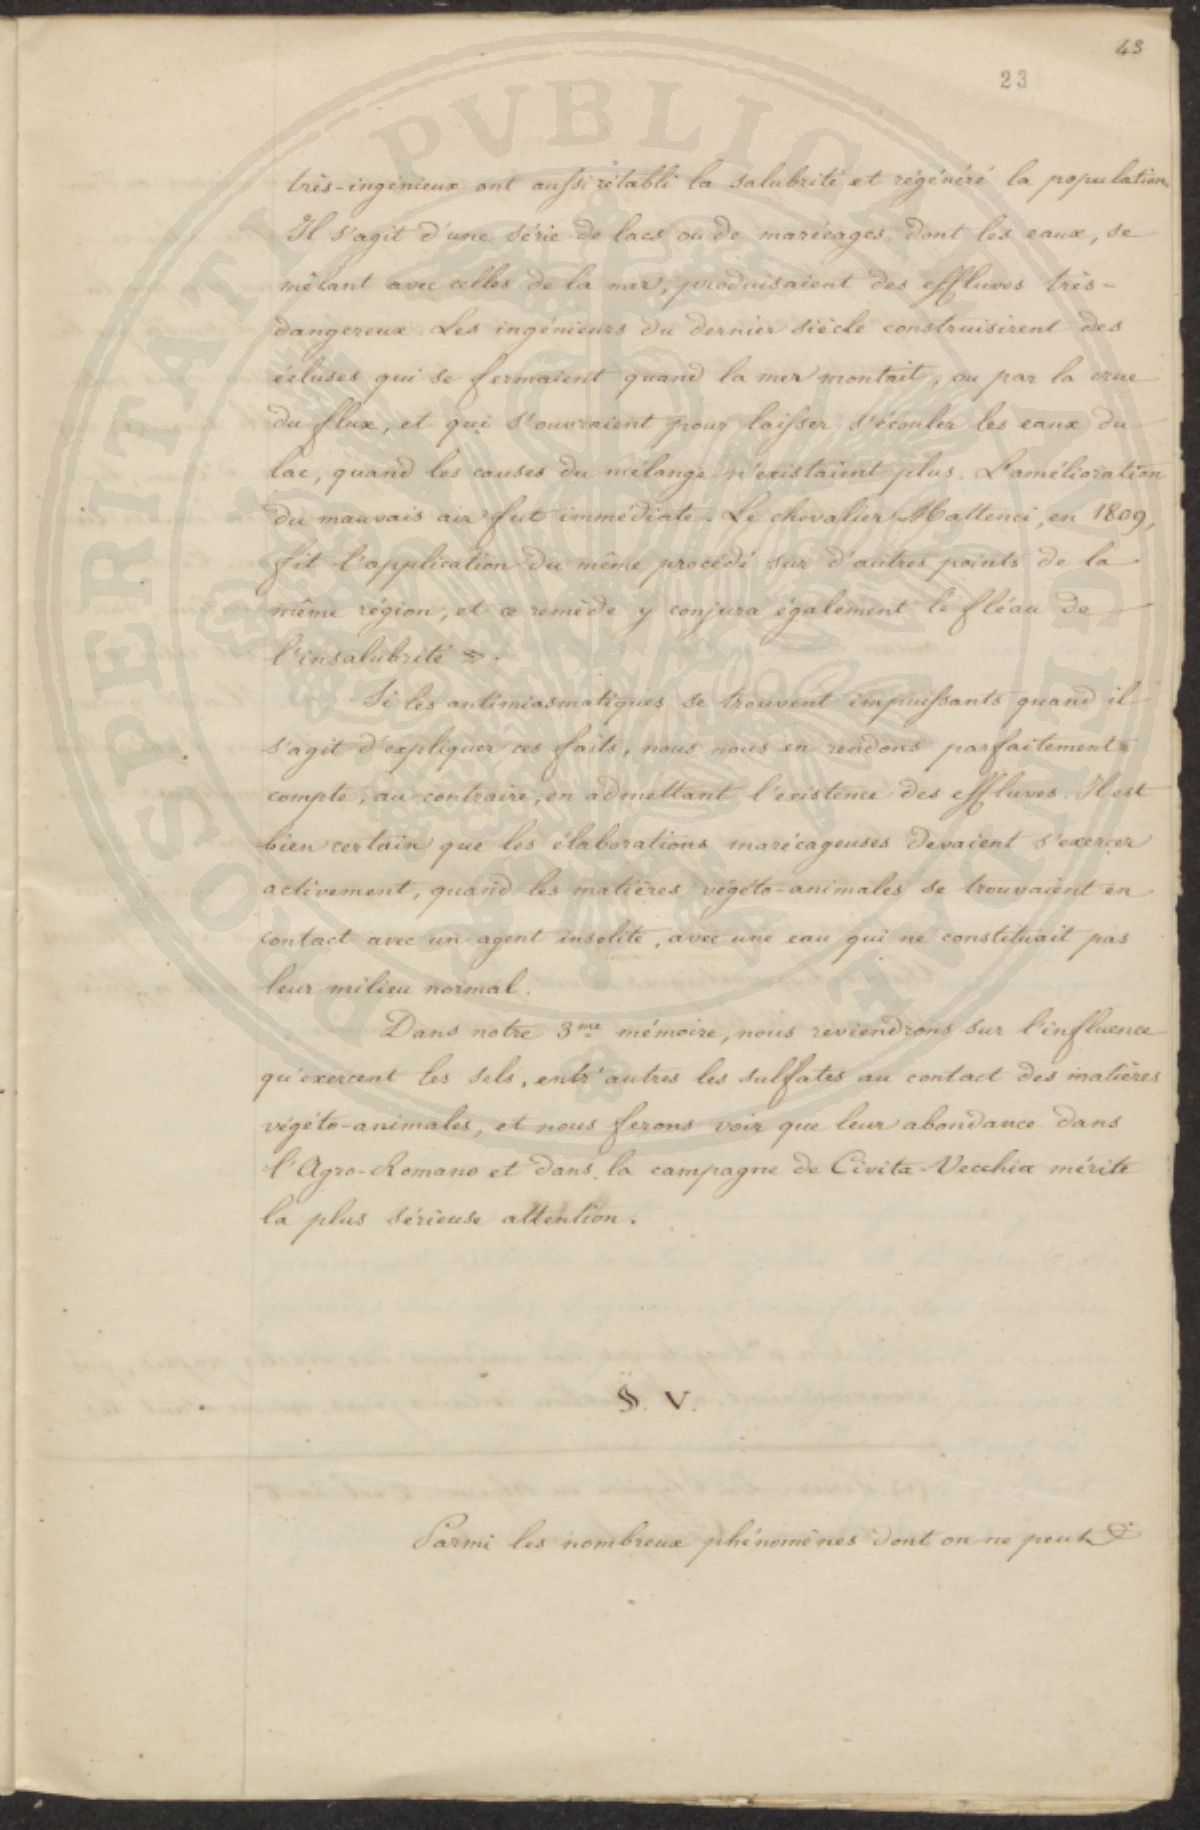 43
23
très-ingénieux ont aussi rétabli la salubrité et régénéré la population.
Il s'agit d'une série de lacs ou de marécages, dont les eaux, se
mêlant avec celles de la mer, produisaient des effluves très-
dangereux. Les ingénieurs du dernier siècle construisirent des
écluses qui se fermaient quand la mer montait, ou par la crue
du flux, et qui s'ouvraient pour laisser s'écouler les eaux du
lac, quand les causes du mélange n'existaient plus. L'amélioration
du mauvais air fut immédiate. Le chevalier Mattenci, en 1809,
fit l'application du même procédé sur d'autres points de la
même région, et ce remède y conjura également le fléau de
l'insalubrité ».
Si les antimiasmatiques se trouvent impuissants quand il
s'agit d'expliquer ces faits, nous nous en rendons parfaitement
compte, au contraire, en admettant l'existence des effluves. Il est
bien certain que les élaborations marécageuses devaient s'exercer
activement, quand les matières végéto-animales se trouvaient en
contact avec un agent insolite, avec une eau qui ne constituait pas
leur milieu normal.
Dans notre 3me mémoire, nous reviendrons sur l'influence
qu'exercent les sels, entr'autres les sulfates au contact des matières
végéto-animales, et nous ferons voir que leur abondance dans
l'Agro-Romano et dans la campagne de Civita-Vecchia mérite
la plus sérieuse attention.
§. V.
Parmi les nombreux phénomènes dont on ne peut
PROSPERITATI PVBLICAE